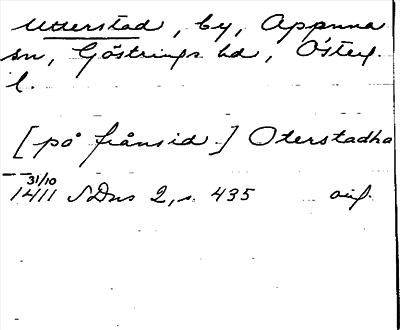 Utterstad, by, Appuna
sn, Göstrings hd, Österg.
l.
[på frånsid.] Oterstadha
31/10
1411 SDns 2, s. 435 avs.